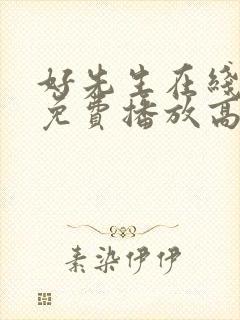 好先生在线
免费播放高
素染伊伊